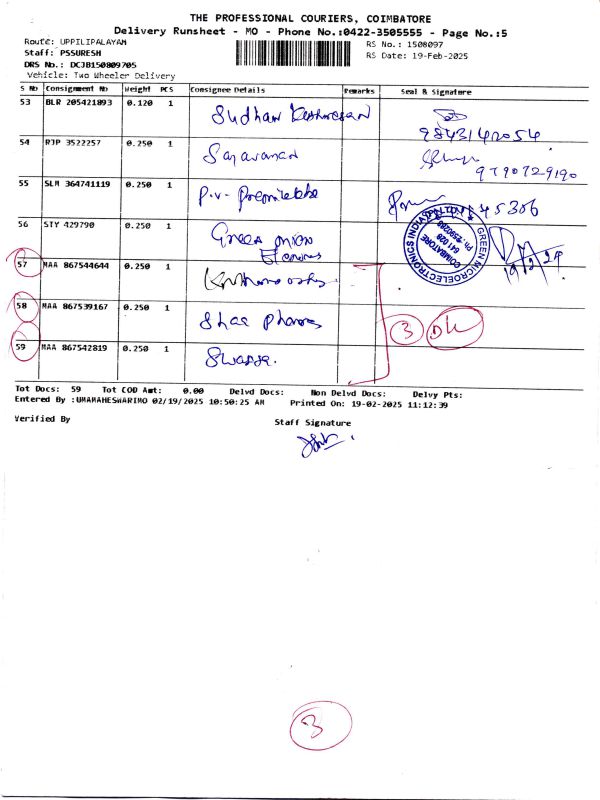 THE PROFESSIONAL COURIERS, COIMBATORE
Delivery Runsheet - MO - Phone No.:0422-3505555 - Page No.:5
Route: UPPILIPALAYAM
RS No.: 1508097
Staff: PSSURESH
RS Date: 19-Feb-2025
DRS No.: DCJB150809705
Vehicle: Two Wheeler Delivery
S No Consignment No Weight PCS Consignee Details Remarks Seal & Signature
53 BLR 205421893 0.120 1 Sudhan
9843142054
54 RJP 3522257 0.250 1 Saravanan
9790729190
55 SLM 364741119 0.250 1 P.V. Premlekha
45306
56 STY 429790 0.250 1 Green micro
GREEN MICROELECTRONICS INDIA
COIMBATORE
641 029
57 MAA 867544644 0.250 1
58 MAA 867539167 0.250 1 Shaa Pharma
3 DL
59 MAA 867542819 0.250 1
Tot Docs: 59 Tot COD Amt: 0.00 Delvd Docs: Non Delvd Docs: Delvy Pts:
Entered By :UMAMAHESWARIMO 02/19/2025 10:50:25 AM Printed On: 19-02-2025 11:12:39
Verified By
Staff Signature
3